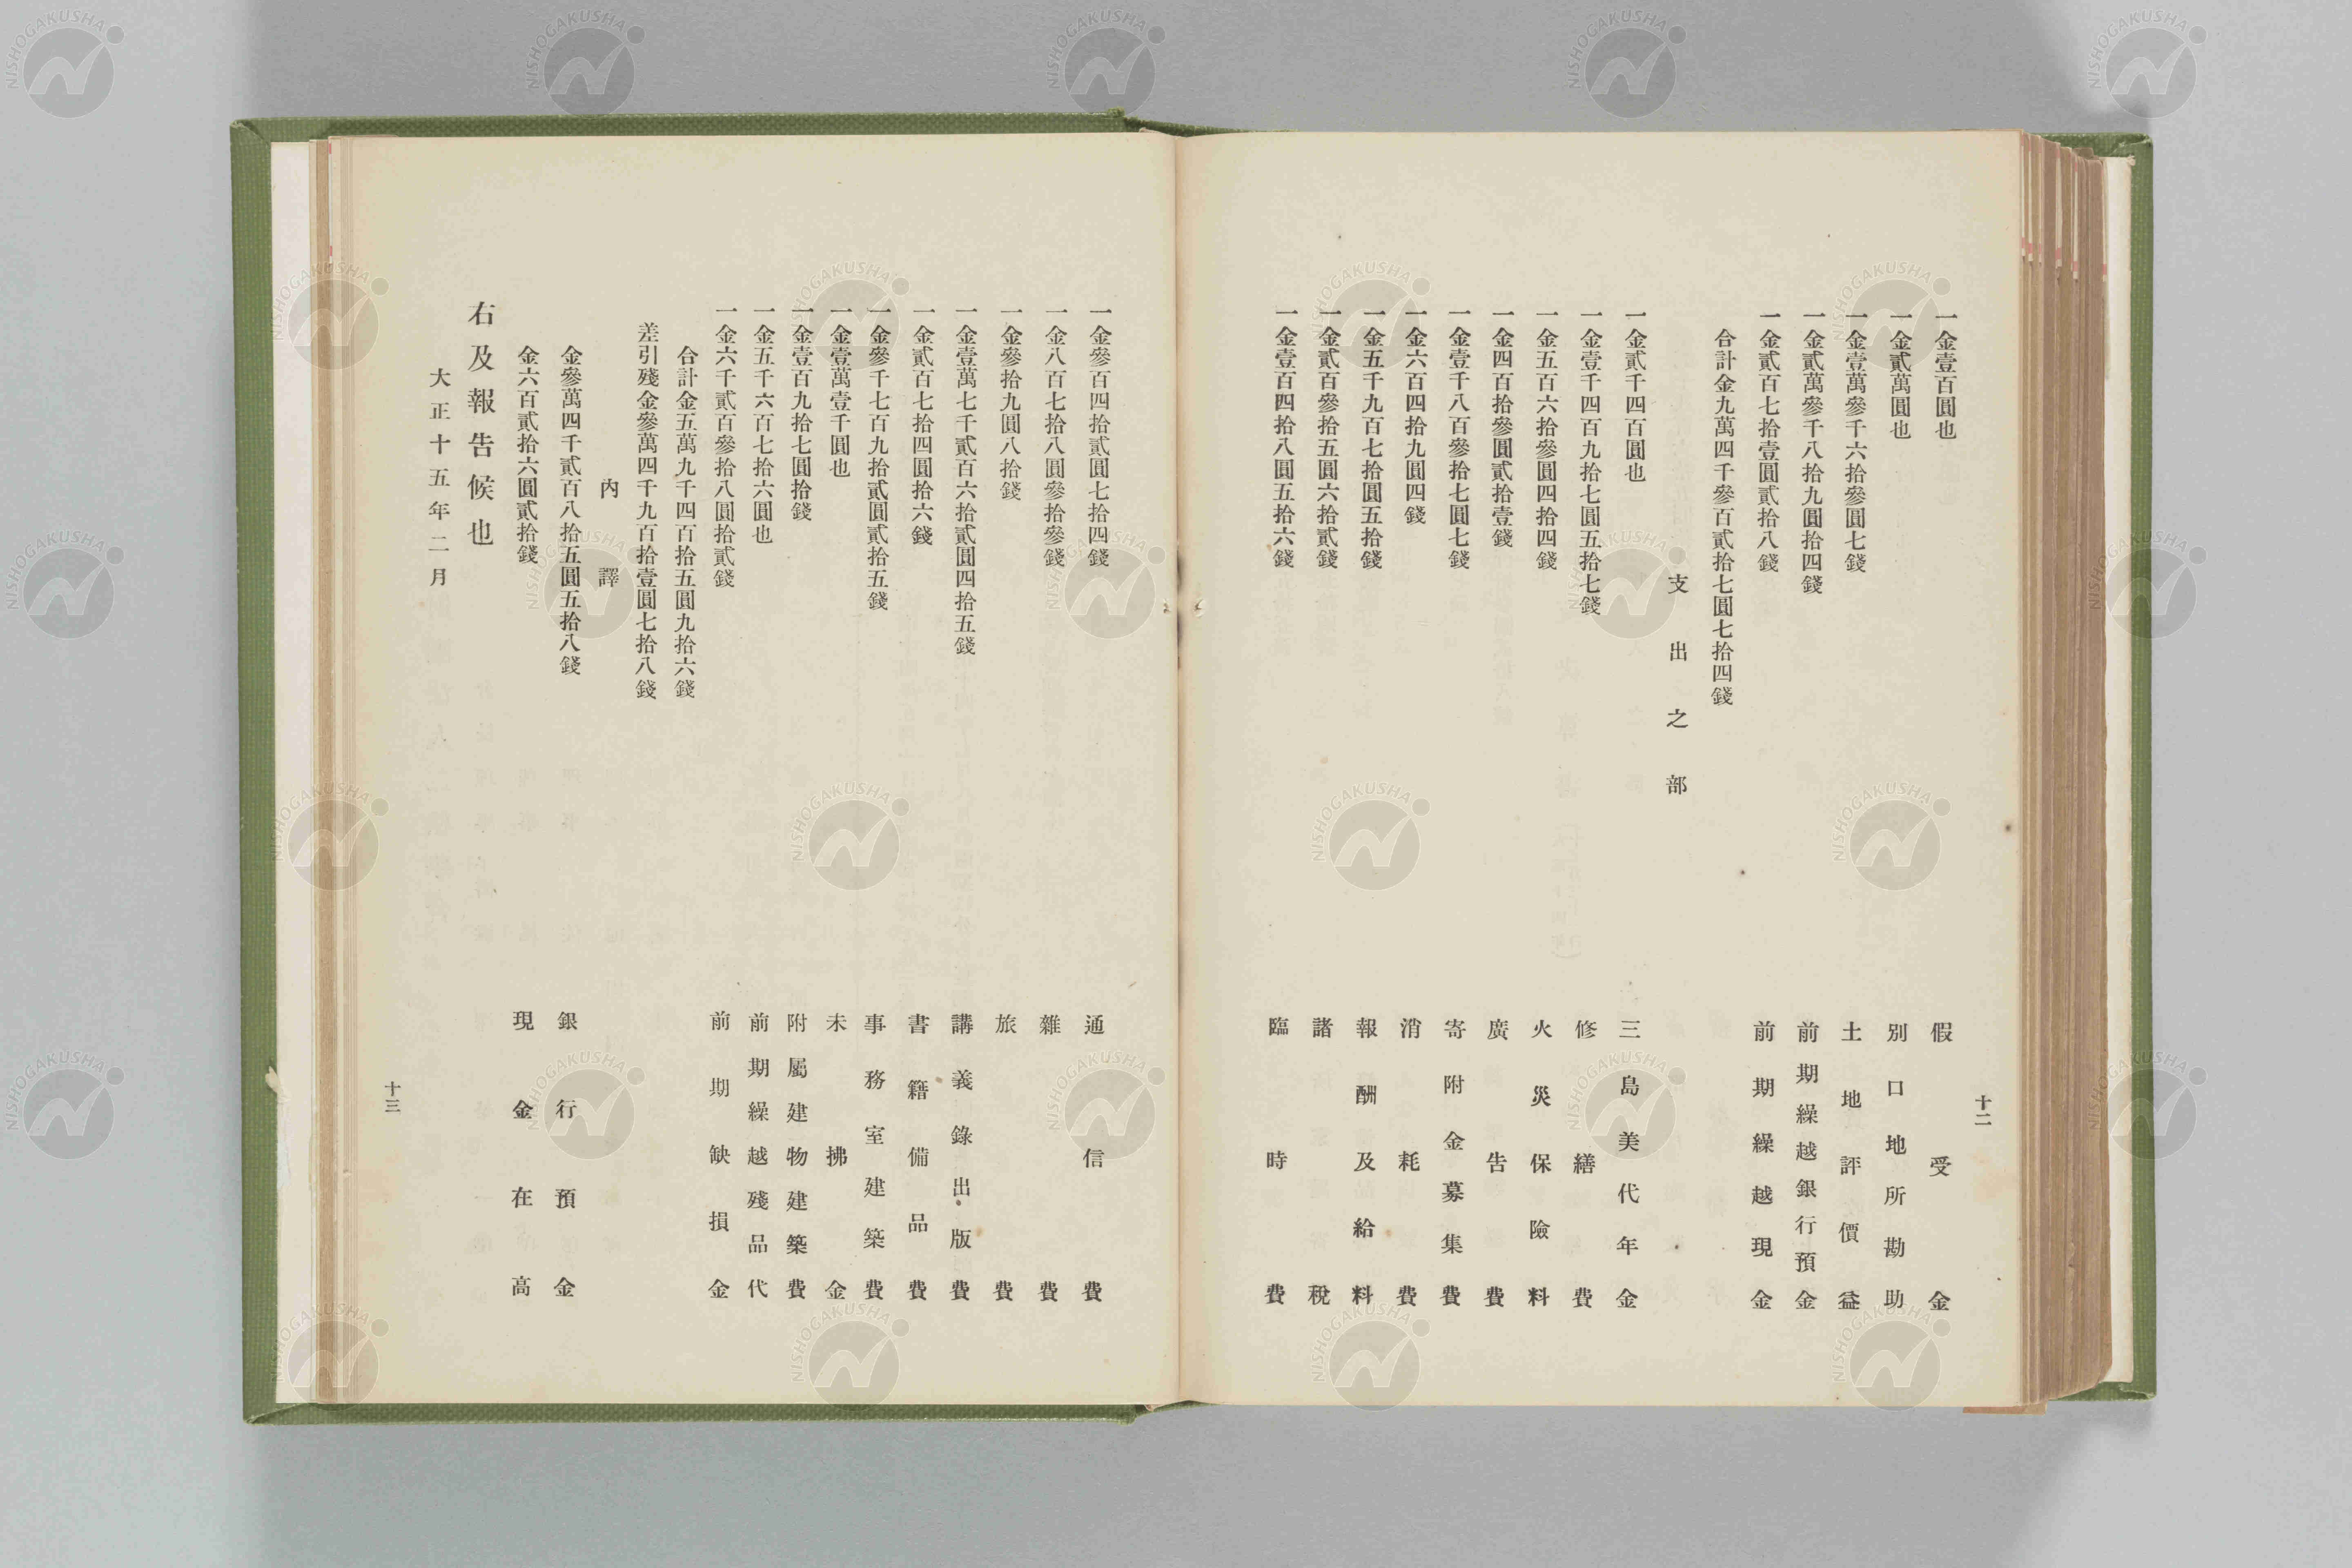 一金壹百圓也 假受金
一金貳萬圓也 別口地所勘助
一金壹萬參千六拾參圓七錢 土地評價益
一金貳萬參千八拾九圓拾四錢 前期繰越銀行預金
一金貳百七拾壹圓貳拾八錢 前期繰越現金
合計金九萬四千參百貳拾七圓七拾四錢
支出之部
一金貳千四百圓也 三島美代年金
一金壹千四百九拾七圓五拾七錢 修繕費
一金五百六拾參圓四拾四錢 火災保險料
一金四百拾參圓貳拾壹錢 廣告費
一金壹千八百參拾七圓七錢 寄附金募集費
一金六百四拾九圓四錢 消耗費
一金五千九百七拾圓五拾錢 報酬及給料
一金貳百參拾五圓六拾貳錢 諸稅
一金壹百四拾八圓五拾六錢 臨時費
十二
一金參百四拾貳圓七拾四錢 通信費
一金八百七拾八圓參拾參錢 雜費
一金參拾九圓八拾錢 旅費
一金壹萬七千貳百六拾貳圓四拾五錢 講義錄出版費
一金貳百七拾四圓拾六錢 書籍備品費
一金參千七百九拾貳圓貳拾五錢 事務室建築費
一金壹萬壹千圓也 未拂金
一金壹百九拾七圓拾錢 附屬建物建築費
一金五千六百七拾六圓也 前期繰越殘品代
一金六千貳百參拾八圓拾貳錢 前期缺損金
合計金五萬九千四百拾五圓九拾六錢
差引殘金參萬四千九百拾壹圓七拾八錢
內譯
金參萬四千貳百八拾五圓五拾八錢 銀行預金
金六百貳拾六圓貳拾錢 現金在高
右及報告候也
大正十五年二月
十三
NISHOGAKUSHA